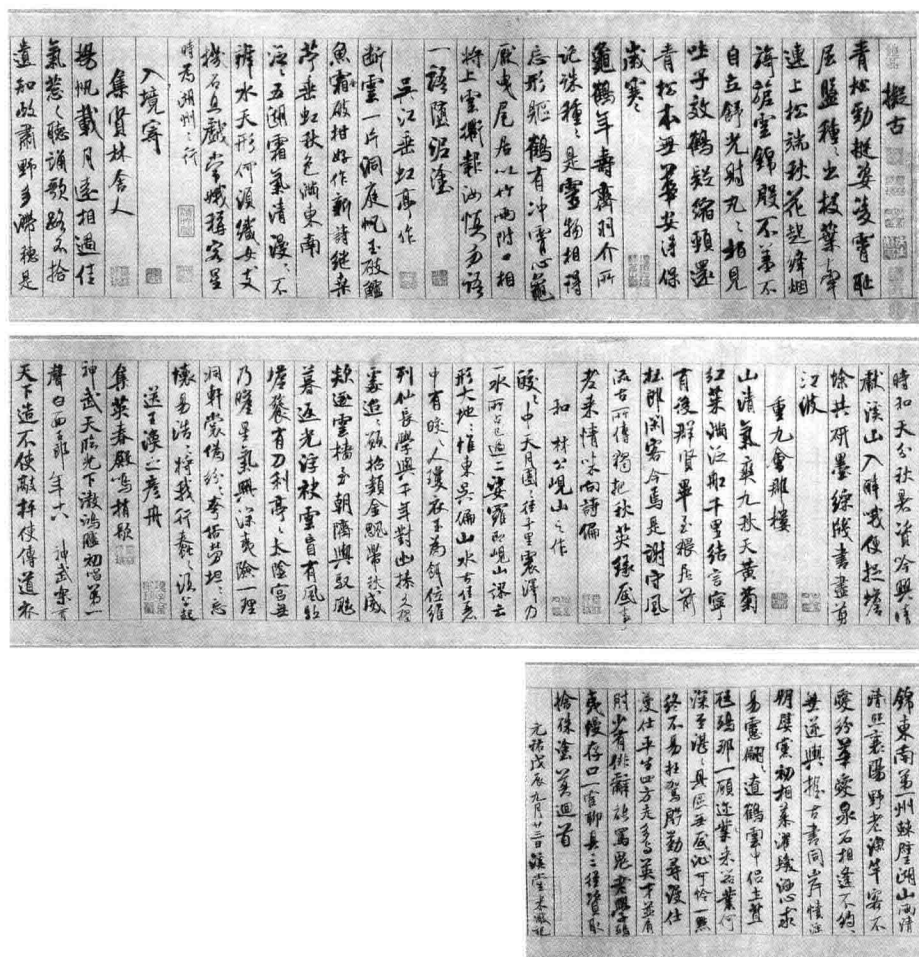 擬古
青松勁挺姿凌霄耻
屈盤種々出枝葉牽
連上松端秋花起絳烟
旖旎雲錦殷不羞不
自立舒光射丸々柏見
吐子效鶴疑縮頸還
青松本無華安得保
歲寒
龜鶴年壽齊羽介所
託殊種々是靈物相得
忘形軀鶴有冲霄心龜
厭曳尾居以竹兩附口相
將上雲衢報汝慎勿語
一語墮泥塗
吳江垂虹亭作
斷雲一片洞庭帆玉破鱸
魚霜破柑好作新詩繼桑
苧垂虹秋色滿東南
泛々五湖霜氣清漫々不
辨水天形何須織女支
機石且戲常娥稱客星
時為湖州之行
入境寄
集賢林舍人
揚帆載月遠相過佳
氣蔥々聽誦歌路不拾
遺知政肅野多滯穗是
時和天分秋暑資吟興晴
獻溪山入醉哦便捉蟾
蜍共研墨綵牋書盡剪
江波
重九會郡樓
山清氣爽九秋天黃菊
紅茱滿泛船千里結言寧
有後群賢畢至猥居前
杜郎閑客今焉是謝守風
流古所傳獨把秋英緣底事
老來情味向詩偏
和林公峴山之作
皎々中天月團々徑千里震澤乃
一水所占已過二娑羅即峴山謬云
形大地々惟東吳偏山水古佳麗
中有皎々人瓊衣玉為餌位維
列仙長學與千年對幽操久獨
處迢々願招類金飈帶秋威
欻逐雲檣至朝隮與馭飈
暮返光浮袂雲盲有風驅
蟾餮有刀利亭々太陰宮無
乃瞻星氣興深夷險一理
洞軒裳偽紛々夸俗勞坦々忘
懷易浩々將我行蠢々須公起
送王渙之彥舟
集英春殿鳴捎歇
神武天臨光下澈鴻臚初唱第一
聲白面玉郎年十八神武樂育
天下造不使敲抨使傳道衣
錦東南第一州棘壁湖山兩清
照襄陽野老漁竿客不
愛紛華愛泉石相逢不約約
無逆輿握古書同岸幘淫
朋嬖黨初相慕濯髮洒心求
易慮翩々遼鶴雲中侶土苴
尪鴟那一顧邇來器業何
深至湛々具區無底沚可憐一點
終不易枉駕殷勤尋漫仕
漫仕平生四方走多與英才並肩
肘少有俳辭能罵鬼老學鴟
夷漫存口一官聊具三徑資取
捨殊塗莫迴首
元祐戊辰九月廿三日溪堂米黻記